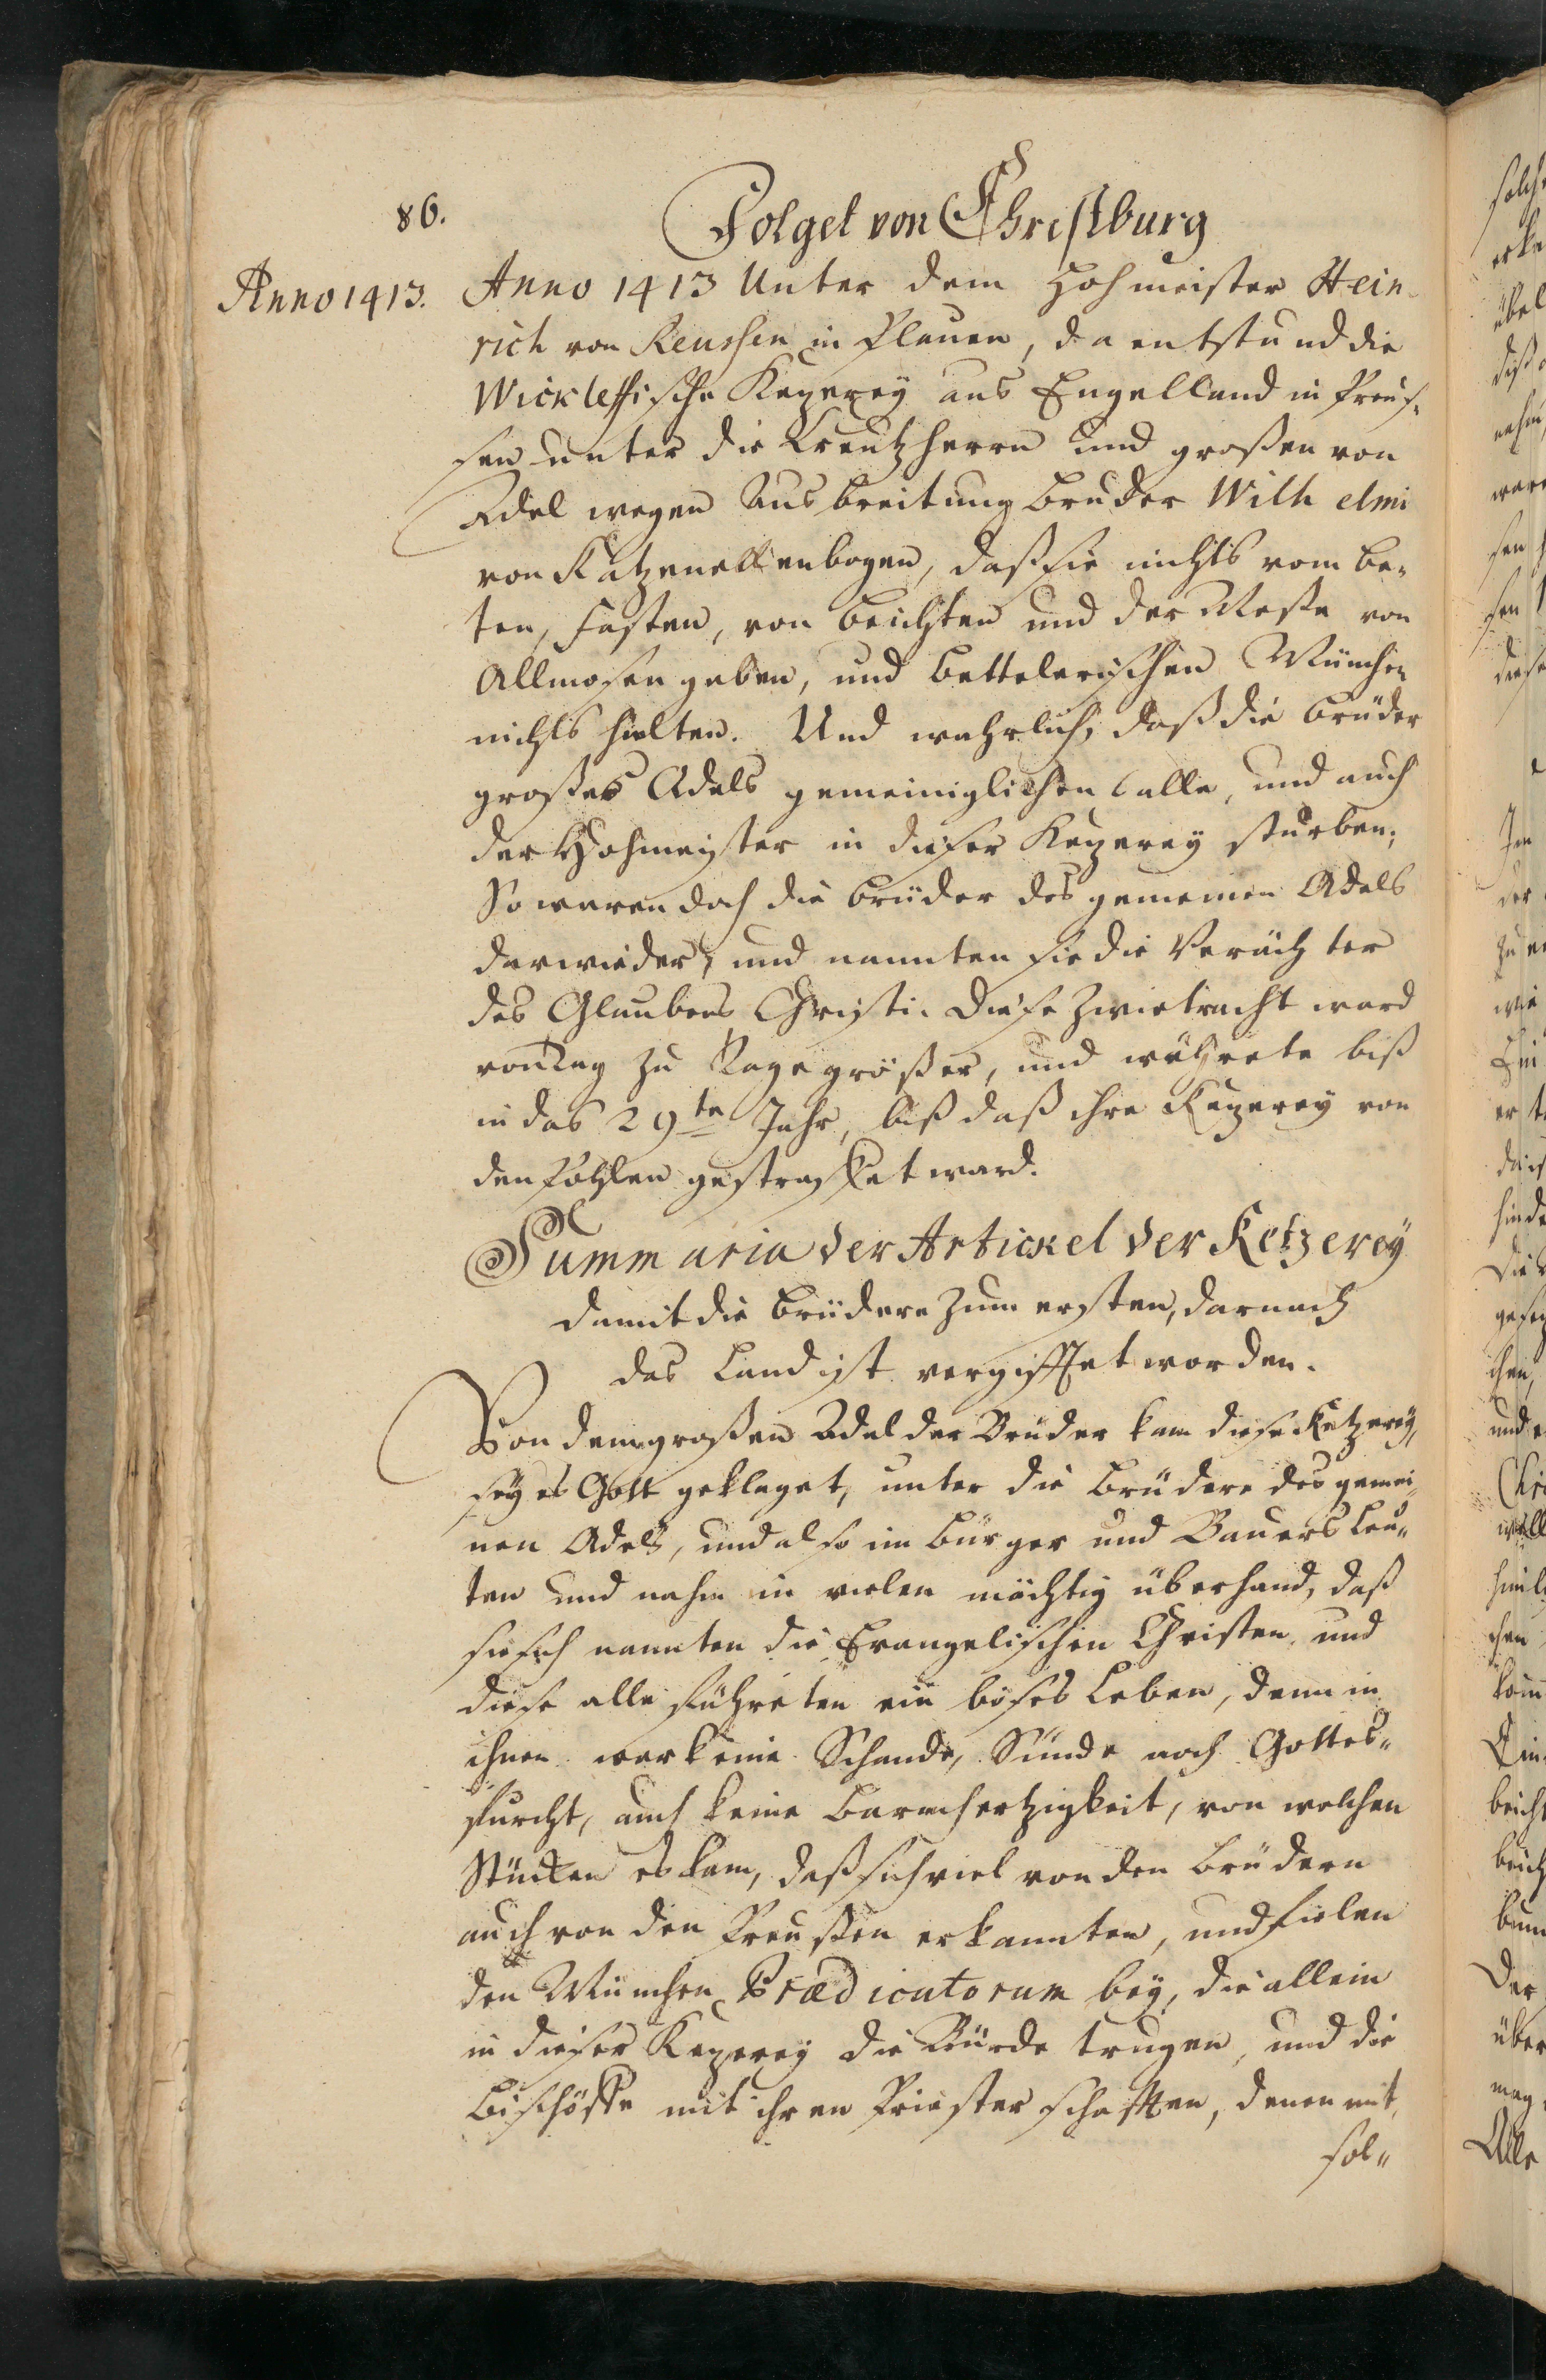 86.
Folget von Christburg
Anno 1413.
Anno 1413 Unter dem Hohmeister Hein-
rich von Reussen in Plauen, da entstund die
Wickleffische Kezerey aus Engelland in Preus-
sen unter die Creutzherrn und großen von
Adel wegen Ausbreitung Bruder Wilhelmi
von Katzenellenbogen, daß sie nichts vom be-
ten, fasten, von beichten und der Messe von
Allmosen geben, und bettelerischen München
nichts hielten. Und wahrlich, daß die Brüder
großes Adels gemeiniglichen alle, und auch
der Hohmeister in dieser Kezerey sturben;
So waren doch die Brüder des gemeinen Adels
darwieder, und nannten sie die Verächter
des Glaubens Christi. Diese Zwietracht ward
von Tag zu Tage größer, und währete biß
in das 29te Jahr, biß daß ihre Kezerey von
den Pohlen gestraffet ward.
Summaria der Artickel der Ketzerey
damit die Brüdere zum ersten, darnach
das Land ist vergifftet worden.
Von dem großen Adel der Brüder kam diese Ketzerey,
sey es Gott geklaget, unter die Brüdere des gemei-
nen Adels, und also im Bürger und Bauersleu-
ten und nahm in vielen mächtig überhand, daß
sie sich nannten die Evangelischen Christen, und
diese alle führeten ein böses Leben, denn in
ihnen war keine Schande, Sünde noch Gottes-
furcht, auch keine Barmhertzigkeit, von welchen
Stücken es kam, daß sich viel von den Brüdern
auch von den Preußen erkannten, und fielen
den München Prædicatorum bey, die allein
in dieser Kezerey die Bürde trugen, und die
Bischöffe mit ihren Priesterschafften, denen mit
sol-